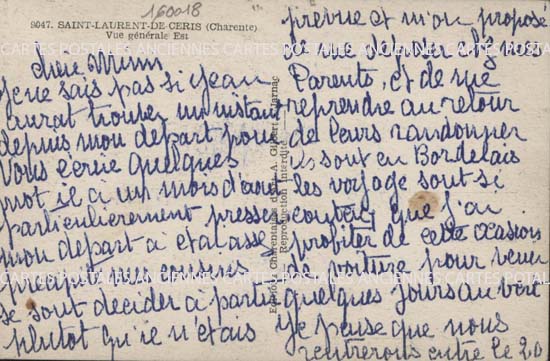 160018
9047. SAINT-LAURENT-DE-CERIS (Charente)
Vue générale Est
chere Mimi
Je ne sais pas si Jean
aurat trouver un instant
depuis mon depart pour
vous ecrire quelques
mot il a un mois d'aout
particulierement presser
mon depart a etai asse
precipité des amis
se sont decider a partir
plutot qu'il n'etais
Editions Charentaises A. Gilbert Jarnac
Reproduction interdite
prevue et m'on proposé
de me deposer chez mes
Parents, et de me
reprendre au retour
de leurs randonner
ils sont en Bordelais
les voyage sont si
couteux que j'ai
profiter de cette ocasion
de voiture pour venir
quelques jours au vert
je pense que nous
rentrerons entre le 20
CARTES POSTALES ANCIENNES CARTES POSTALES ANCIENNES CARTES POSTALES ANCIENNES